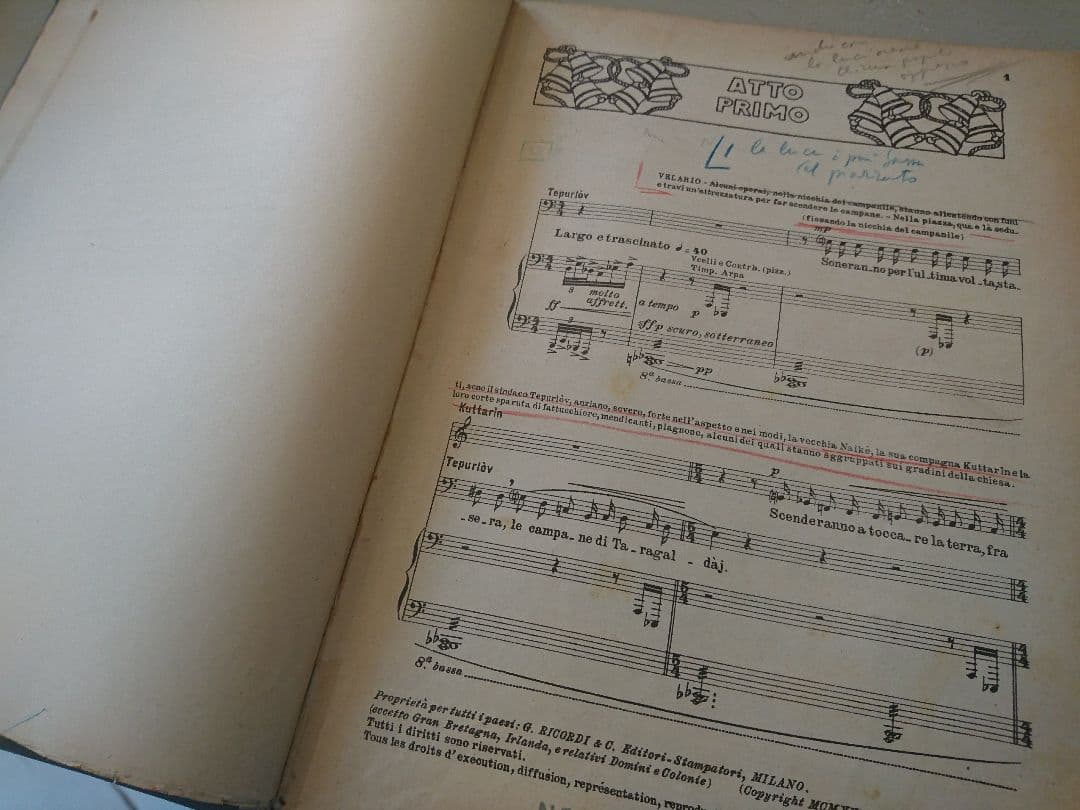 1
ATTO
PRIMO
la luce è più bassa
VELARIO - Alcuni operai, nella nicchia del campanile, stanno allestendo con funi
e travi un'attrezzatura per far scendere le campane. - Nella piazza, qua e là sedu-
(fissando la nicchia del campanile)
Tepurlòv
mp
Soneran_no per l'ul_tima vol_ta, sta_
Largo e trascinato ♩= 40
Vcelli e Contrb. (pizz.)
Timp. Arpa
3 molto
affrett.
ff
a tempo
p
(p)
sffp scuro, sotterraneo
3
pp
8ª bassa
ti, sono il sindaco Tepurlòv, anziano, severo, forte nell'aspetto e nei modi, la vecchia Naikè, la sua compagna Kuttarin e la
loro corte sparuta di fattucchiere, mendicanti, piagnone, alcuni dei quali stanno aggruppati sui gradini della chiesa.
Kuttarin
p
Scenderanno a tocca_re la terra, fra
Tepurlòv
-se_ra, le campa_ne di Ta_ragal - dàj.
8ª bassa
Proprietà per tutti i paesi: G. RICORDI & C. Editori-Stampatori, MILANO.
(eccetto Gran Bretagna, Irlanda, e relativi Domini e Colonie)
(Copyright
Tutti i diritti sono riservati.
Tous les droits d'execution, diffusion, représentation,